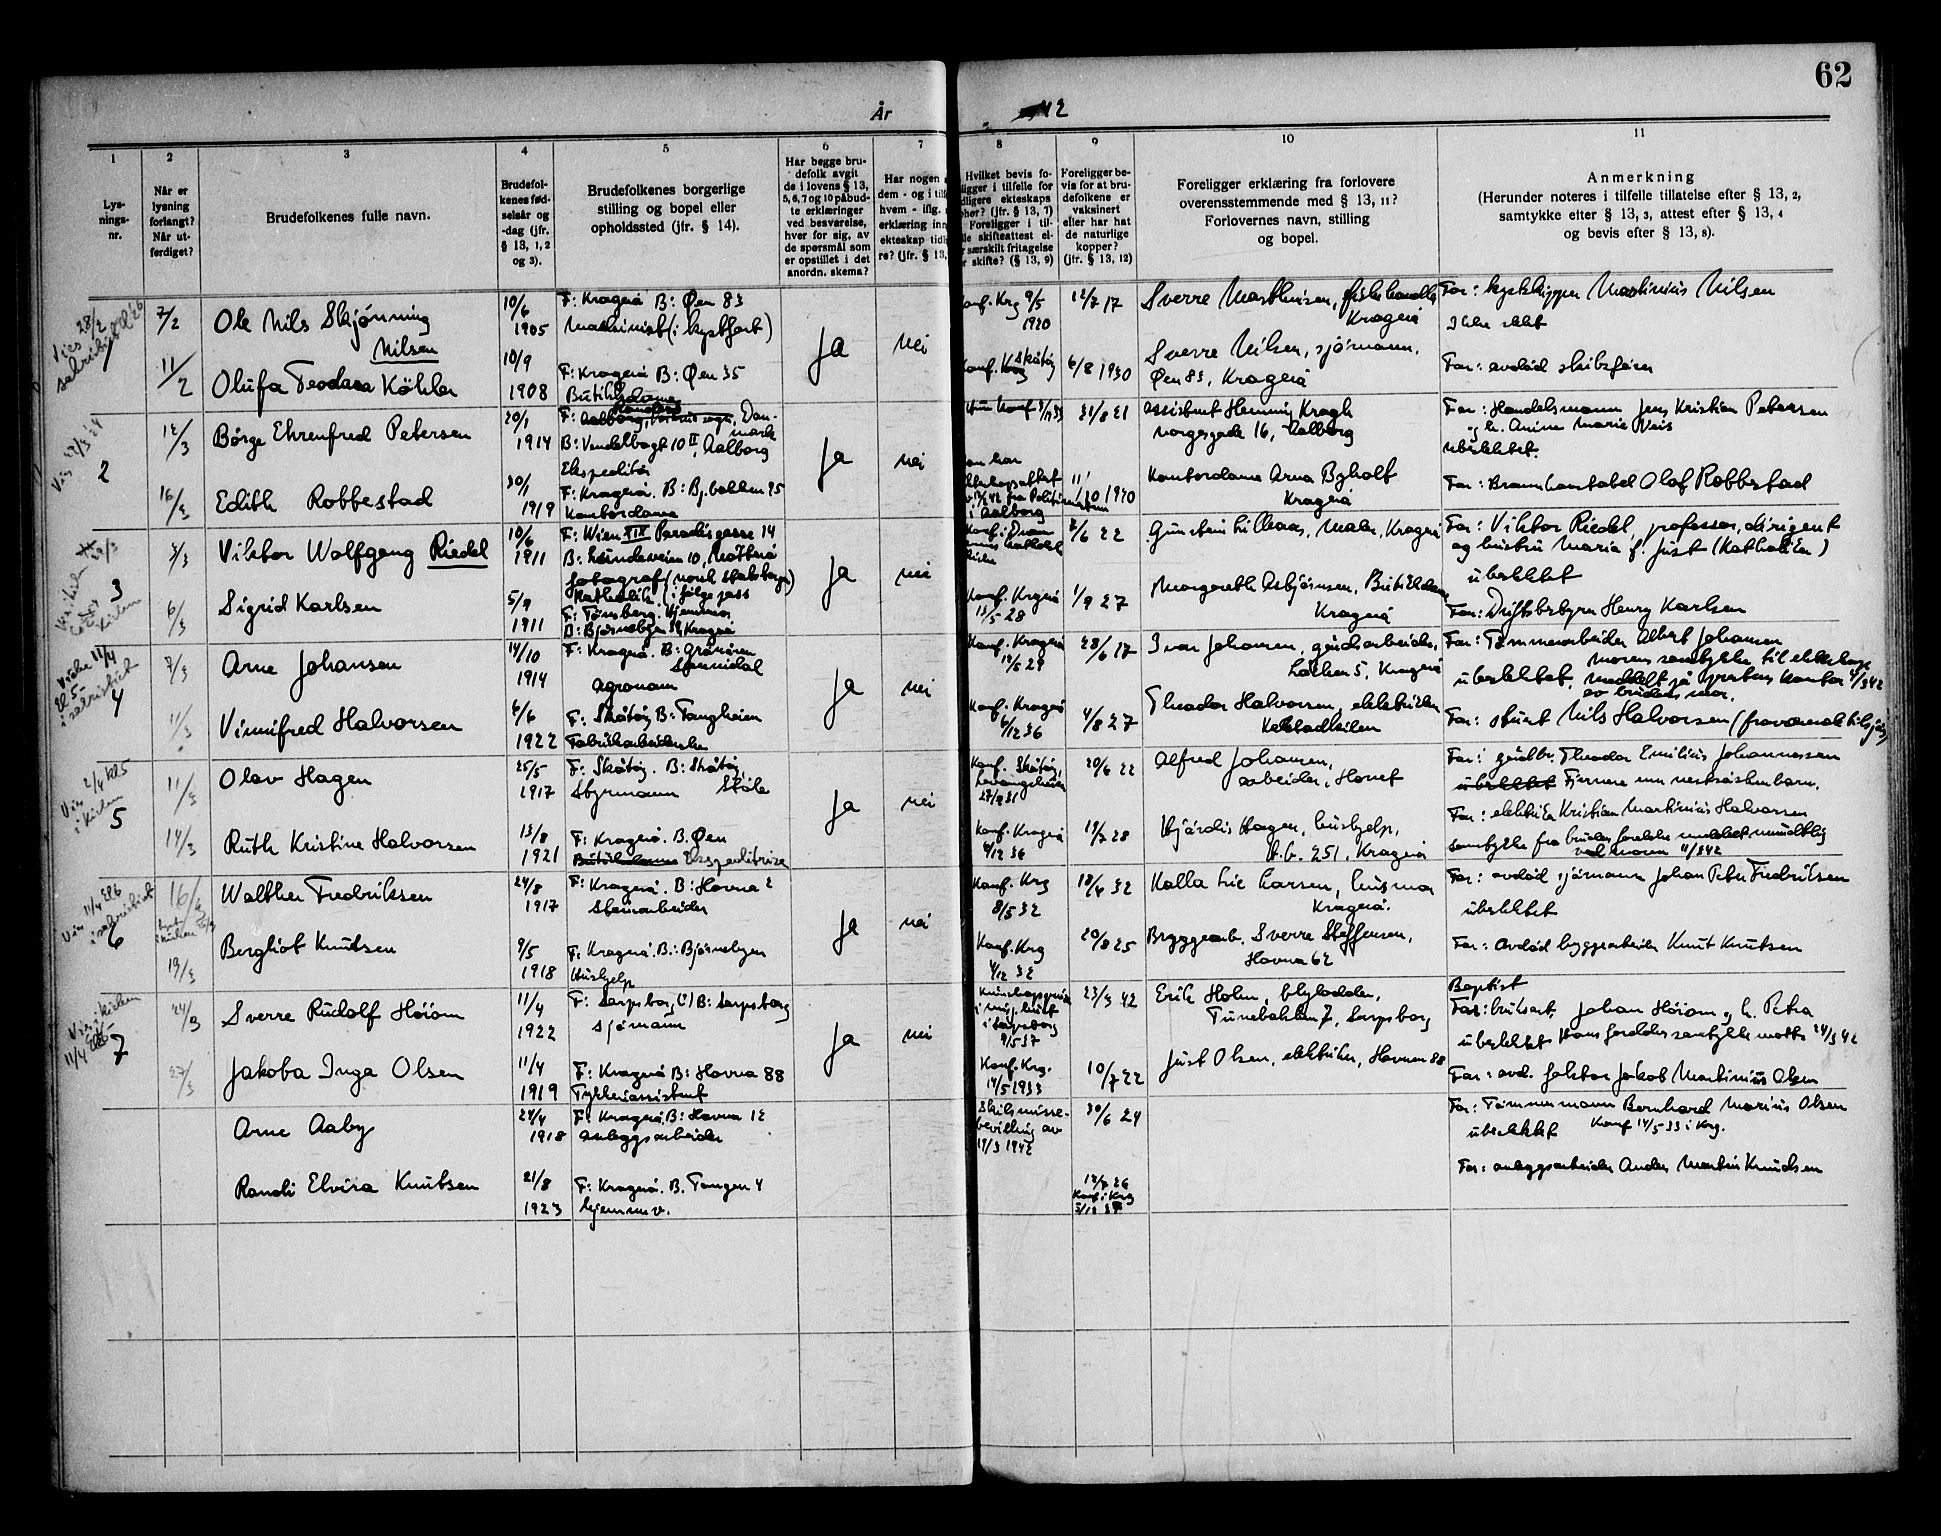 62
År 42
1
2
3
4
5
6
7
8
9
10
11
Lys-
nings-
nr.
Når er
lysning
forlangt?
Når ut-
ferdiget?
Brudefolkenes fulle navn.
Brudefol-
kenes fød-
selsår og
-dag (jfr.
§ 13, 1, 2
og 3).
Brudefolkenes borgerlige
stilling og bopel eller
opholdssted (jfr. § 14).
Har begge bru-
defolk avgit
de i lovens § 13,
5, 6, 7 og 10 påbud-
te erklæringer
ved besvarelse,
hver for sig, av
de spørsmål som
er opstillet i det
anordn. skema?
Har nogen
dem - og i tilf
hvem - iflg.
erklæring inn
ekteskap tidl
re? (jfr. § 13,
Hvilket bevis fo-
ligger i tilfelle for
dligere ekteskaps
phør? (jfr. § 13, 7)
Foreligger i til-
lle skifteattest el-
r særskilt fritagelse
r skifte? (§ 13, 9)
Foreligger be-
vis for at bru-
defolkene er
vaksinert
eller har hat
de naturlige
kopper?
(jfr. § 13, 12)
Foreligger erklæring fra forlovere
overensstemmende med § 13, 11?
Forlovernes navn, stilling
og bopel.
Anmerkning
(Herunder noteres i tilfelle tillatelse efter § 13, 2,
samtykke efter § 13, 3, attest efter § 13, 4
og bevis efter § 13, 8).
1
7/2
Ole Nils Skjønning
Nilsen
10/6
1905
F: Kragerø B: Øen 83
Maskinist (i kystfart)
Ja
nei
Konf. Krg 9/5
1920
12/7 17
Sverre Mathisen, fiskehandler
Kragerø
Far: kystskipper Martinius Nilsen
Ikke slekt
11/2
Olufa Teodora Köhler
10/9
1908
F: Kragerø B: Øen 35
Butikkdame
Konf. Krg Skåtøy
6/8 1930
Sverre Nilsen, sjømann,
Øen 83, Kragerø
Far: avdød skibsfører
2
12/3
Børge Ehrenfred Petersen
20/1
1914
F: Aalborg, Dan-
mark
B: Vendelbogt 10 II, Aalborg
Ekspeditør
Ja
nei
31/8 21
Assistent Henning Kragh
Norgesgade 16, Aalborg
Far: Handelsmann Jens Kristian Petersen
og h. Anine Marie Veis
ubeslektet.
16/3
Edith Robbestad
30/1
1919
F: Kragerø. B: Bj.bakken 95
Kontordame
i Aalborg
11/10 1920
Kontordame Arna Byholt
Kragerø
Far: Brannkonstabel Olaf Robbestad
3
3/3
Viktor Wolfgang Riedel
10/6
1911
F: Wien XIX Paradisgasse 14
B: Lundeveien 10, Notterø
fotograf (norsk statsborger)
Katholik (ifølge pass
Ja
nei
2/6 22
Gunstein Lillaas, Maler, Kragerø
Far: Viktor Riedel, professor, dirigent
og hustru Maria f. Just (Katholiker)
ubeslektet
6/3
Sigrid Karlsen
5/9
1911
F: Tønsberg. Hjemmev
B: Bjørnsbgen 34, Kragerø
Konf. Kragerø
13/5 28
1/9 27
Margareth Asbjørnsen, Butikkdame
Kragerø
Far: Driftsbestyrer Henry Karlsen
4
7/3
Arne Johansen
14/10
1914
F: Kragerø. B: Grånåsen
Sannidal
Agronom
Ja
nei
Konf. Kragerø
28/6 17
Ivar Johansen, gårdarbeider,
Løkken 5, Kragerø
Far: Tømmerarbeider Albert Johansen
ubeslektet, Morens samtykke til ekteskap
meddelt på sognepr. kontor 4/3 42
av brudens mor.
11/3
Vinnifred Halvorsen
6/6
1922
F: Skåtøy B: Tangheien
Fabrikkarbeiderske
Konf. Kragerø
6/12 36
4/8 27
Theodor Halvorsen, elektriker
Kalstadkilen
Far: stuert Nils Halvorsen (fraværende tilsjøs)
5
11/3
Olav Hagen
25/5
1917
F: Skåtøy. B: Skåtøy
Styrmann Støle
Ja
nei
Konf. Skåtøy,
27/9 31
20/6 22
Alfred Johansen,
arbeider, Hornet
Far: gårdbr. Theodor Emilius Johannessen
ubeslektet Fjernere enn nestsøskenbarn.
14/3
Ruth Kristine Halvorsen
13/8
1921
F: Kragerø. B. Øen
Butikkdame Ekspeditrise
Konf. Kragerø
6/12 36
19/7 28
Hjørdis Hagen, hushjelp,
H.b. 251, Kragerø
Far: elektriker Kristian Martinius Halvorsen
samtykke fra brudens foreldre meddelt mundtlig
ved moren 11/3 42
6
16/3
Walther Fredriksen
24/8
1917
F: Kragerø. B: Havna 2
Stenarbeider
Ja
nei
Konf. Krg
8/5 32
18/4 32
Kalla Lie Larsen, husmor
Kragerø.
Far: avdød sjømann Johan Peter Fredriksen
ubeslektet
19/3
Bergliot Knutsen
9/5
1918
F. Kragerø. B.: Bjørnsbgen
Hushjelp
Konf. Krg
4/12 32
20/8 25
Bryggearb. Sverre Steffensen,
Havna 62
Far: Avdød byggearbeider Knut Knutsen
7
24/3
Sverre Rudolf Høiom
11/4
1922
F: Sarpsborg, (!) B: Sarpsborg
Sjømann
Ja
nei
i Sarpsborg
9/5 37
23/3 42
Erik Holm, blylodder,
Tunebakken 7, Sarpsborg
Baptist
Far: Johan Høiom og h. Petra
ubeslektet Hans foreldres samtykke mottatt 24/3 42
27/3
Jakoba Inga Olsen
11/4
1919
F: Kragerø B: Havna 88
Trykkeriassistent
Konf. Krg.
14/5 1933
10/7 22
Just Olsen, elektriker, Havna 88
Far: avd. faktor Jakob Martinius Olsen
Arne Aaby
24/4
1918
F: Kragerø. B: Havna 12
Anleggsarbeider
Skilsmisse-
bevilling av
17/3 1942
30/6 24
Far: Tømmermann Bernhard Marius Olsen
ubeslektet Konf 14/5 33 i Krg.
Randi Elvira Knutsen
21/8
1923
F: Kragerø. B. Tangen 4
hjemmev.
18/7 26
Konf. i Krg
5/12 37
Far: anleggsarbeider Anders Martin Knudsen